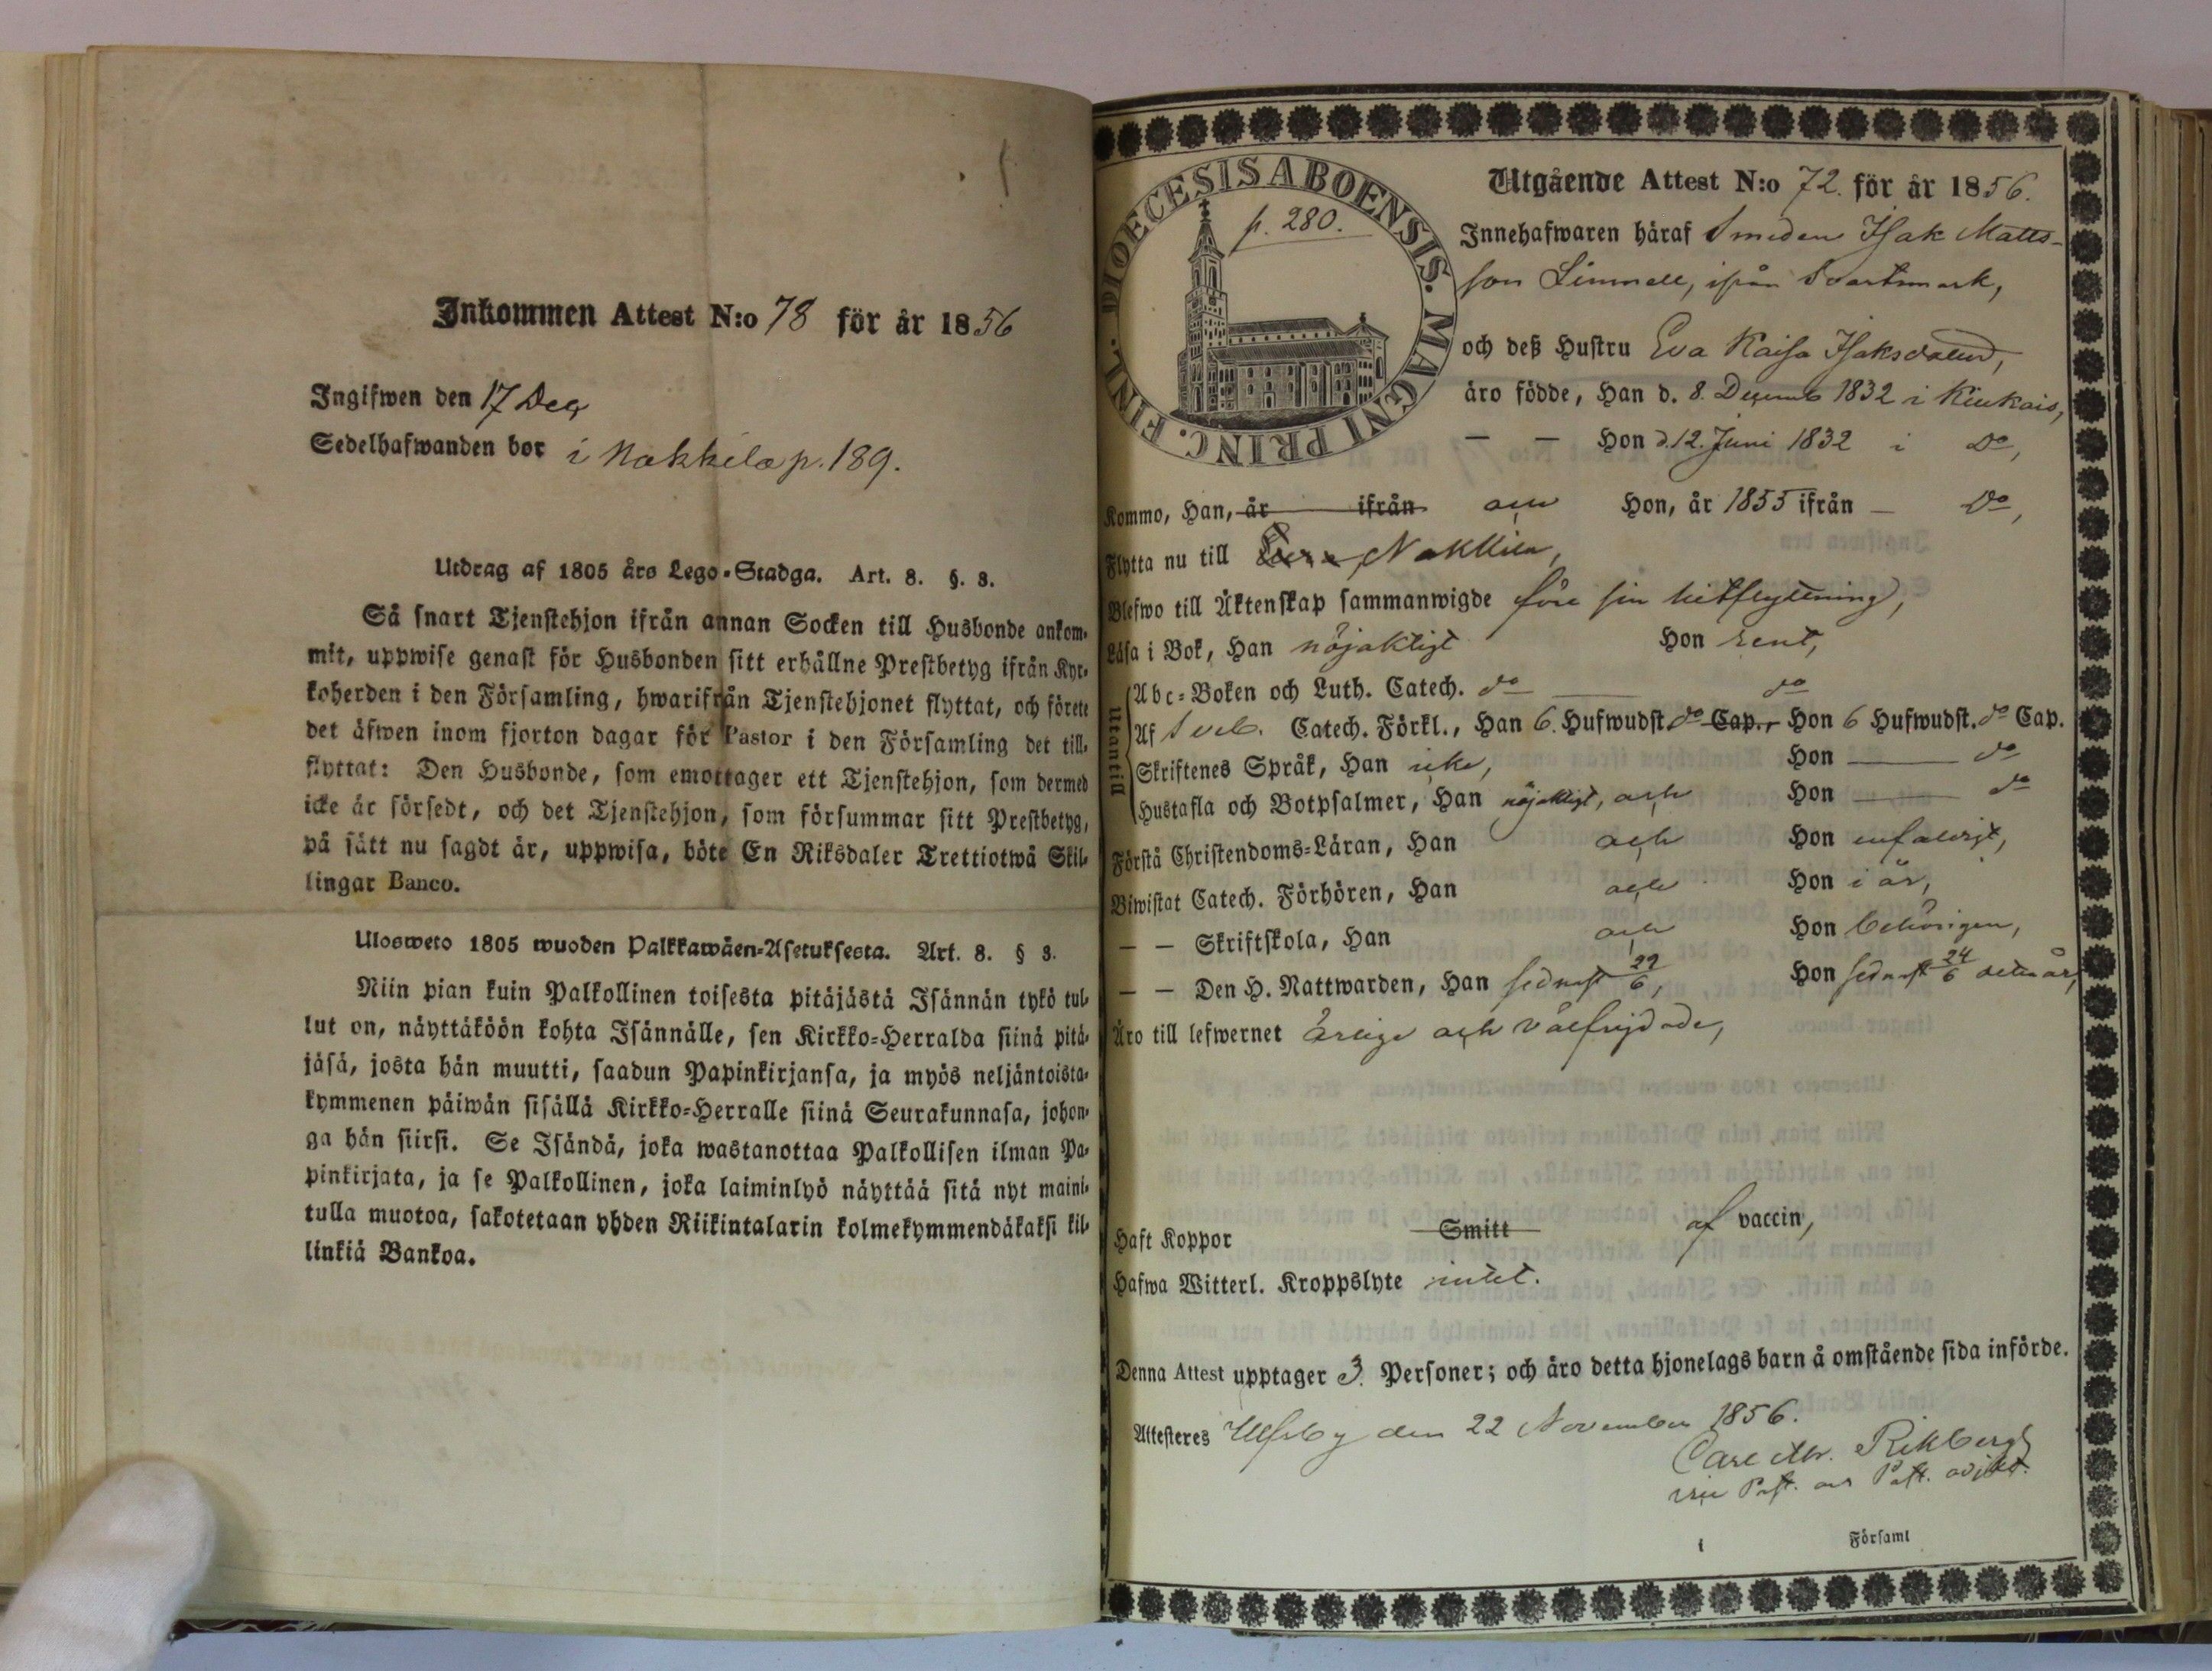 Inkommen Attest N:o 78 för år 1856
Ingifwen den 17 Dec
Sedelhafwanden bor i Nakkila p. 189.
Utdrag af 1805 års Lego-Stadga. Art. 8. §. 8.
Så snart Tjenstehjon ifrån annan Socken till Husbonde ankom-
mit, uppwise genast för Husbonden sitt erhållne Prestbetyg ifrån Kyr-
koherden i den Församling, hwarifrån Tjenstehjonet flyttat, och förete
det äfwen inom fjorton dagar för Pastor i den Församling det till-
flyttat: Den Husbonde, som emottager ett Tjenstehjon, som dermed
icke är försedt, och det Tjenstehjon, som försummar sitt Prestbetyg,
på sätt nu sagdt är, uppwisa, böte En Riksdaler Trettiotwå Skil-
lingar Banco.
Ulosweto 1805 wuoden Palkkawäen-Asetuksesta. Art. 8. § 8.
Niin pian kuin Palkollinen toisesta pitäjästä Isännän tykö tul-
lut on, näyttäköön kohta Isännälle, sen Kirkko-Herralda siinä pitä-
jäsä, josta hän muutti, saadun Papinkirjansa, ja myös neljäntoista-
kymmenen päiwän sisällä Kirkko-Herralle siinä Seurakunnasa, johon-
ga hän siirsi. Se Isändä, joka wastanottaa Palkollisen ilman Pa-
pinkirjata, ja se Palkollinen, joka laiminlyö näyttää sitä nyt maini-
tulla muotoa, sakotetaan yhden Riikintalarin kolmekymmendäkaksi kil-
linkiä Bankoa.
DIOECESIS ABOENSIS. MAGNI PRINC. FINL.
p. 280.
Utgående Attest N:o 72. för år 1856.
Innehafwaren häraf Smeden Isak Matts-
son Linnell, ifrån Svartsmark,
och deß Hustru Eva Kaisa Isaksdotter,
äro födde, Han d. 8. Decemb 1832 i Kiukais,
— — Hon d. 12. Juni 1832 i Do,
Kommo, Han, år ifrån och Hon, år 1855 ifrån — Do,
Flytta nu till Nakkila,
Blefwo till Äktenskap sammanwigde före sin hitflyttning,
Läsa i Bok, Han nöjaktigt Hon rent,
Utantill
Abc-Boken och Luth. Catech. do — do
Af Sveb. Catech. Förkl., Han 6 Hufwudst. do Cap., Hon 6 Hufwudst. do Cap.
Skriftenes Språk, Han icke, Hon — do
Hustafla och Botpsalmer, Han nöjaktigt, och Hon — do
Förstå Christendoms-Läran, Han och Hon enfaldigt,
Biwistat Catech. Förhören, Han och Hon i år,
— — Skriftskola, Han och Hon behörigen,
— — Den H. Nattwarden, Han sednast 22/6, Hon sednast 24/6 detta år,
Äro till lefwernet ärlige och välfrejdade,
Haft Koppor Smitt af vaccin,
Hafwa Witterl. Kroppslyte intet.
Denna Attest upptager 3. Personer; och äro detta hjonelags barn å omstående sida införde.
Attesteres Ulfsby den 22 November 1856.
Carl Mr. Rikberg
vice Past. och Past. adjkt.
i Församl